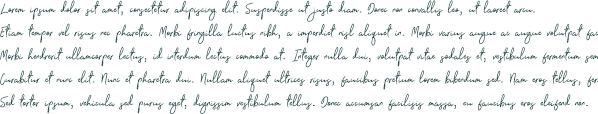 Lorem ipsum dolor sit amet, consectetur adipiscing elit. Suspendisse ut justo diam. Donec non convallis leo, ut laoreet arcu.
Etiam tempor vel risus nec pharetra. Morbi fringilla luctus nibh, a imperdiet nisl aliquet in. Morbi varius augue ac augue volutpat fac
Morbi hendrerit ullamcorper lectus, id interdum lectus commodo at. Integer nulla dui, volutpat vitae sodales et, vestibulum fermentum sem
Curabitur et nunc elit. Nunc et pharetra dui. Nullam aliquet ultrices risus, faucibus pretium lorem bibendum sed. Nam eros tellus, fer
Sed tortor ipsum, vehicula sed purus eget, dignissim vestibulum tellus. Donec accumsan facilisis massa, eu faucibus eros eleifend non.